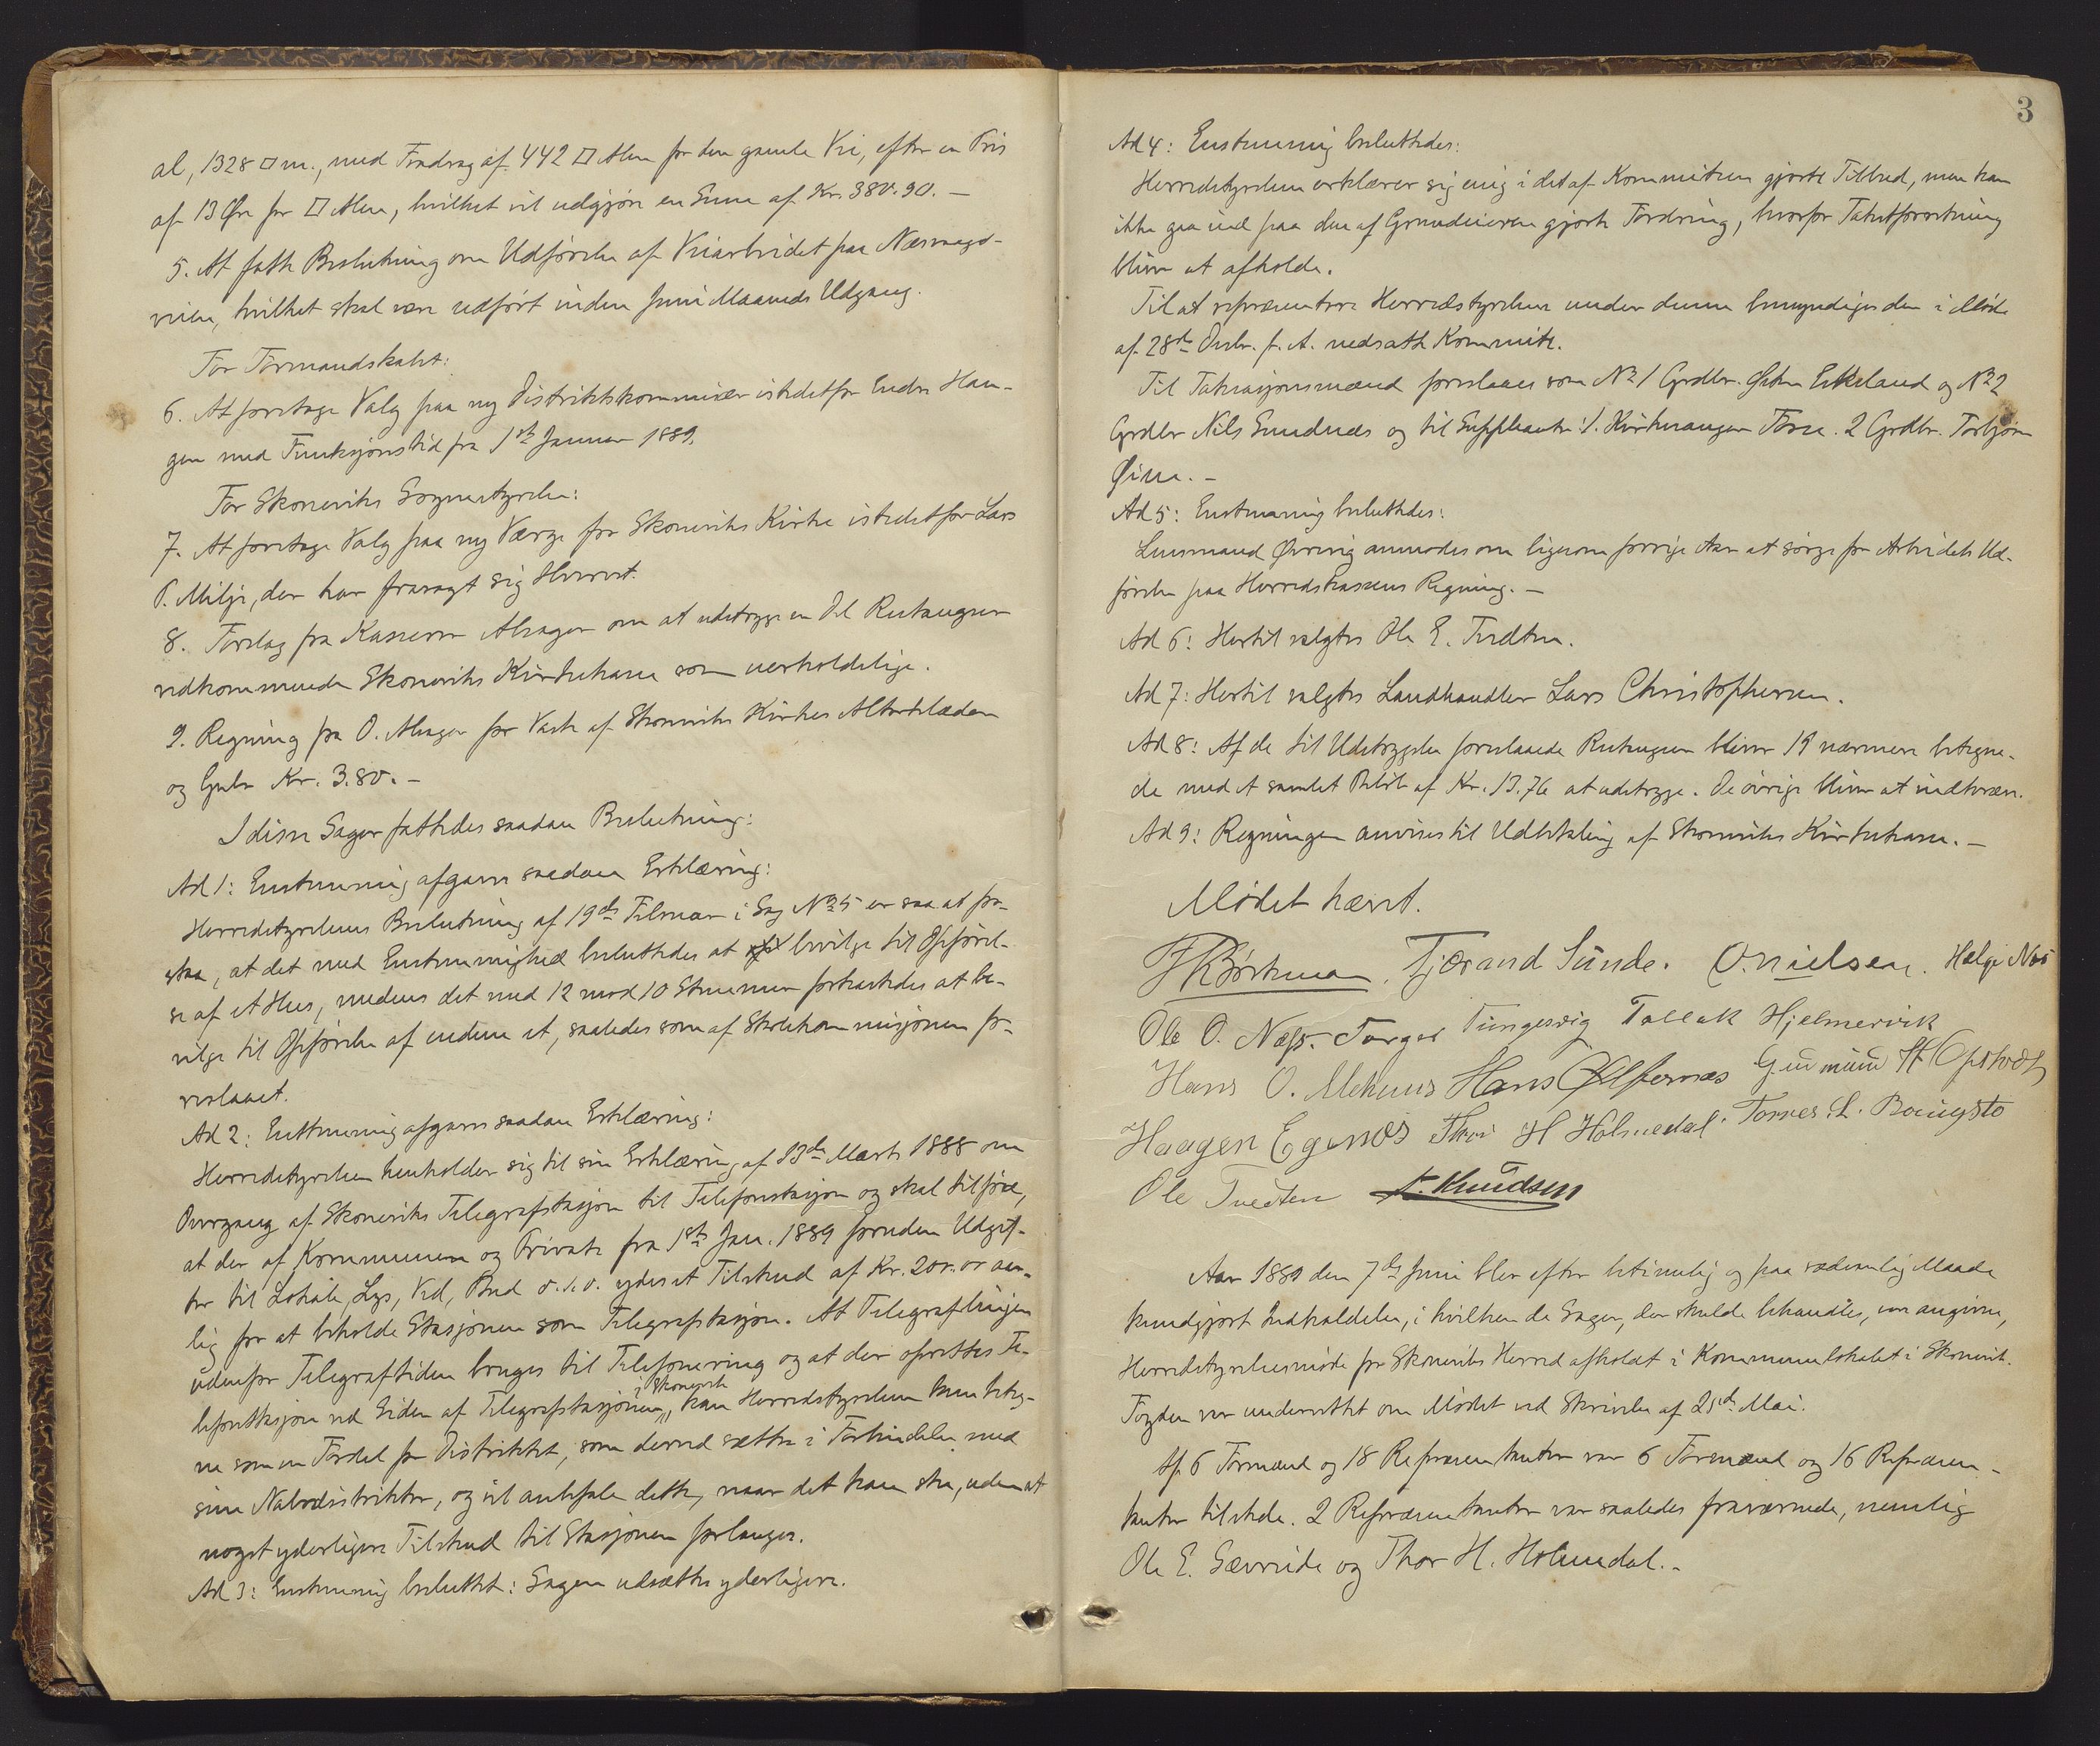 al, 1328 □ m., med Fradrag af 442 □ Alen for den gamle Vei, efter en Pris
af 13 Øre pr □ Alen, hvilket vil udgjøre en Sum af Kr. 380.90. —
5. At fatte Beslutning om Udførelse af Veiarbeidet paa Næsvaags-
veien, hvilket skal være udført inden Juni Maaneds Udgang.
For Formandskabet:
6. At foretage Valg paa ny Distriktskommissær istedetfor Endre Hau-
gen med Funksjonstid fra 1ste Januar 1889.
For Skoneviks Sognestyrelse:
7. At foretage Valg paa ny Værge for Skoneviks Kirke istedetfor Lars
P. Milje, der har frasagt sig Hvervet.
8. Forslag fra Kasserer Alsager om at udstryge en Del Restanser
vedkommende Skoneviks Kirkekasse som uerholdelige.
9. Regning fra O. Alsager for Vask af Skoneviks Kirkes Alterklæder
og Gulv Kr. 3.80. —
I disse Sager fattedes saadan Beslutning:
Ad 1: Enstemmig afgaves saadan Erklæring:
Herredstyrelsens Beslutning af 19de Februar i Sag No 5 er saa at for-
staa, at det med Enstemmighed besluttedes at bevilge til Opførel-
se af et Hus, medens det med 12 mod 10 Stemmer forkastedes at be-
vilge til Opførelse af endnu et, saaledes som af Skolekommisjonen fo-
reslaaet.
Ad 2: Enstemmig afgaves saadan Erklæring:
Herredstyrelsen henholder sig til sin Erklæring af 13de Marts 1888 om
Overgang af Skoneviks Telegrafstasjon til Telefonstasjon og skal tilføie,
at der af Kommunen og Private fra 1ste Jan. 1889 foruden Udgif-
ter til Lokale, Lys, Ved, Bud o.s.v. ydes et Tilskud af Kr. 200.00 aar-
lig for at beholde Stasjonen som Telegrafstasjon. At Telegraflinjen
udenfor Telegraftiden bruges til Telefonering og at der oprettes Te-
lefonstasjon ved Siden af Telegrafstasjonen i Skonevik, kan Herredstyrelsen kun beteg-
ne som en Fordel for Distriktet, som derved sættes i Forbindelse med
sine Nabodistrikter, og vil anbefale dette, naar det kan ske, uden at
noget yderligere Tilskud til Stasjonen forlanges.
Ad 3: Enstemmig besluttet: Sagen udsættes yderligere.
3
Ad 4: Enstemmig besluttedes:
Herredstyrelsen erklærer sig enig i det af Kommiteen gjorte Tilbud, men kan
ikke gaa ind paa den af Grundeieren gjorte Fordring, hvorfor Takstforretning
bliver at afholde.
Til at repræsentere Herredstyrelsen under denne bemyndiges den i Møde
af 28de Decbr. f. A. nedsatte Kommite.
Til Taksasjonsmænd foreslaaes som No 1 Grdbr. Østen Eikeland og No 2
Grdbr Nils Sundnæs og til Suppleanter: 1. Kirkesanger Tørre. 2 Grdbr. Torbjørn
Øien. —
Ad 5: Enstemmig besluttedes:
Lensmand Øvrevig anmodes om ligesom forrige Aar at sørge for Arbeidets Ud-
førelse paa Herredskassens Regning. —
Ad 6: Hertil valgtes Ole E. Tvedten.
Ad 7: Hertil valgtes Landhandler Lars Christophersen.
Ad 8: Af de til Udstrygelse foreslaaede Restanser bliver 19 nærmere betegne-
de med et samlet Beløb af Kr. 13.76 at udstryge. De øvrige bliver at inddrive.
Ad 9: Regningen anvises til Udbetaling af Skoneviks Kirkekasse. —
Mødet hævet.
Tjærand Sunde. O. Nielsen. Helge Næs
Ole O. Næss. Torger Tungesvig Tallak Hjelmervik
Hans O. Mehuus Hans Ølfernæs Gudmund H Opstvedt
Haagen Egenæs Thor H Holmedal. Tormes. L. Baugsto
Ole Tvedten A. Knudsen
Aar 1889 den 7de Juni blev efter betimelig og paa sedvanlig Maade
kundgjort Indkaldelse, i hvilken de Sager, der skulde behandles, var angivne,
Herredstyrelsesmøde for Skoneviks Herred afholdt i Kommunelokalet i Skonevik.
Fogden var underrettet om Mødet ved Skrivelse af 25de Mai.
Af 6 Formænd og 18 Repræsentanter var 6 Formænd og 16 Repræsen-
tanter tilstede. 2 Repræsentanter var saaledes fraværende, nemlig
Ole E. Sævreide og Thor H. Holmedal. —